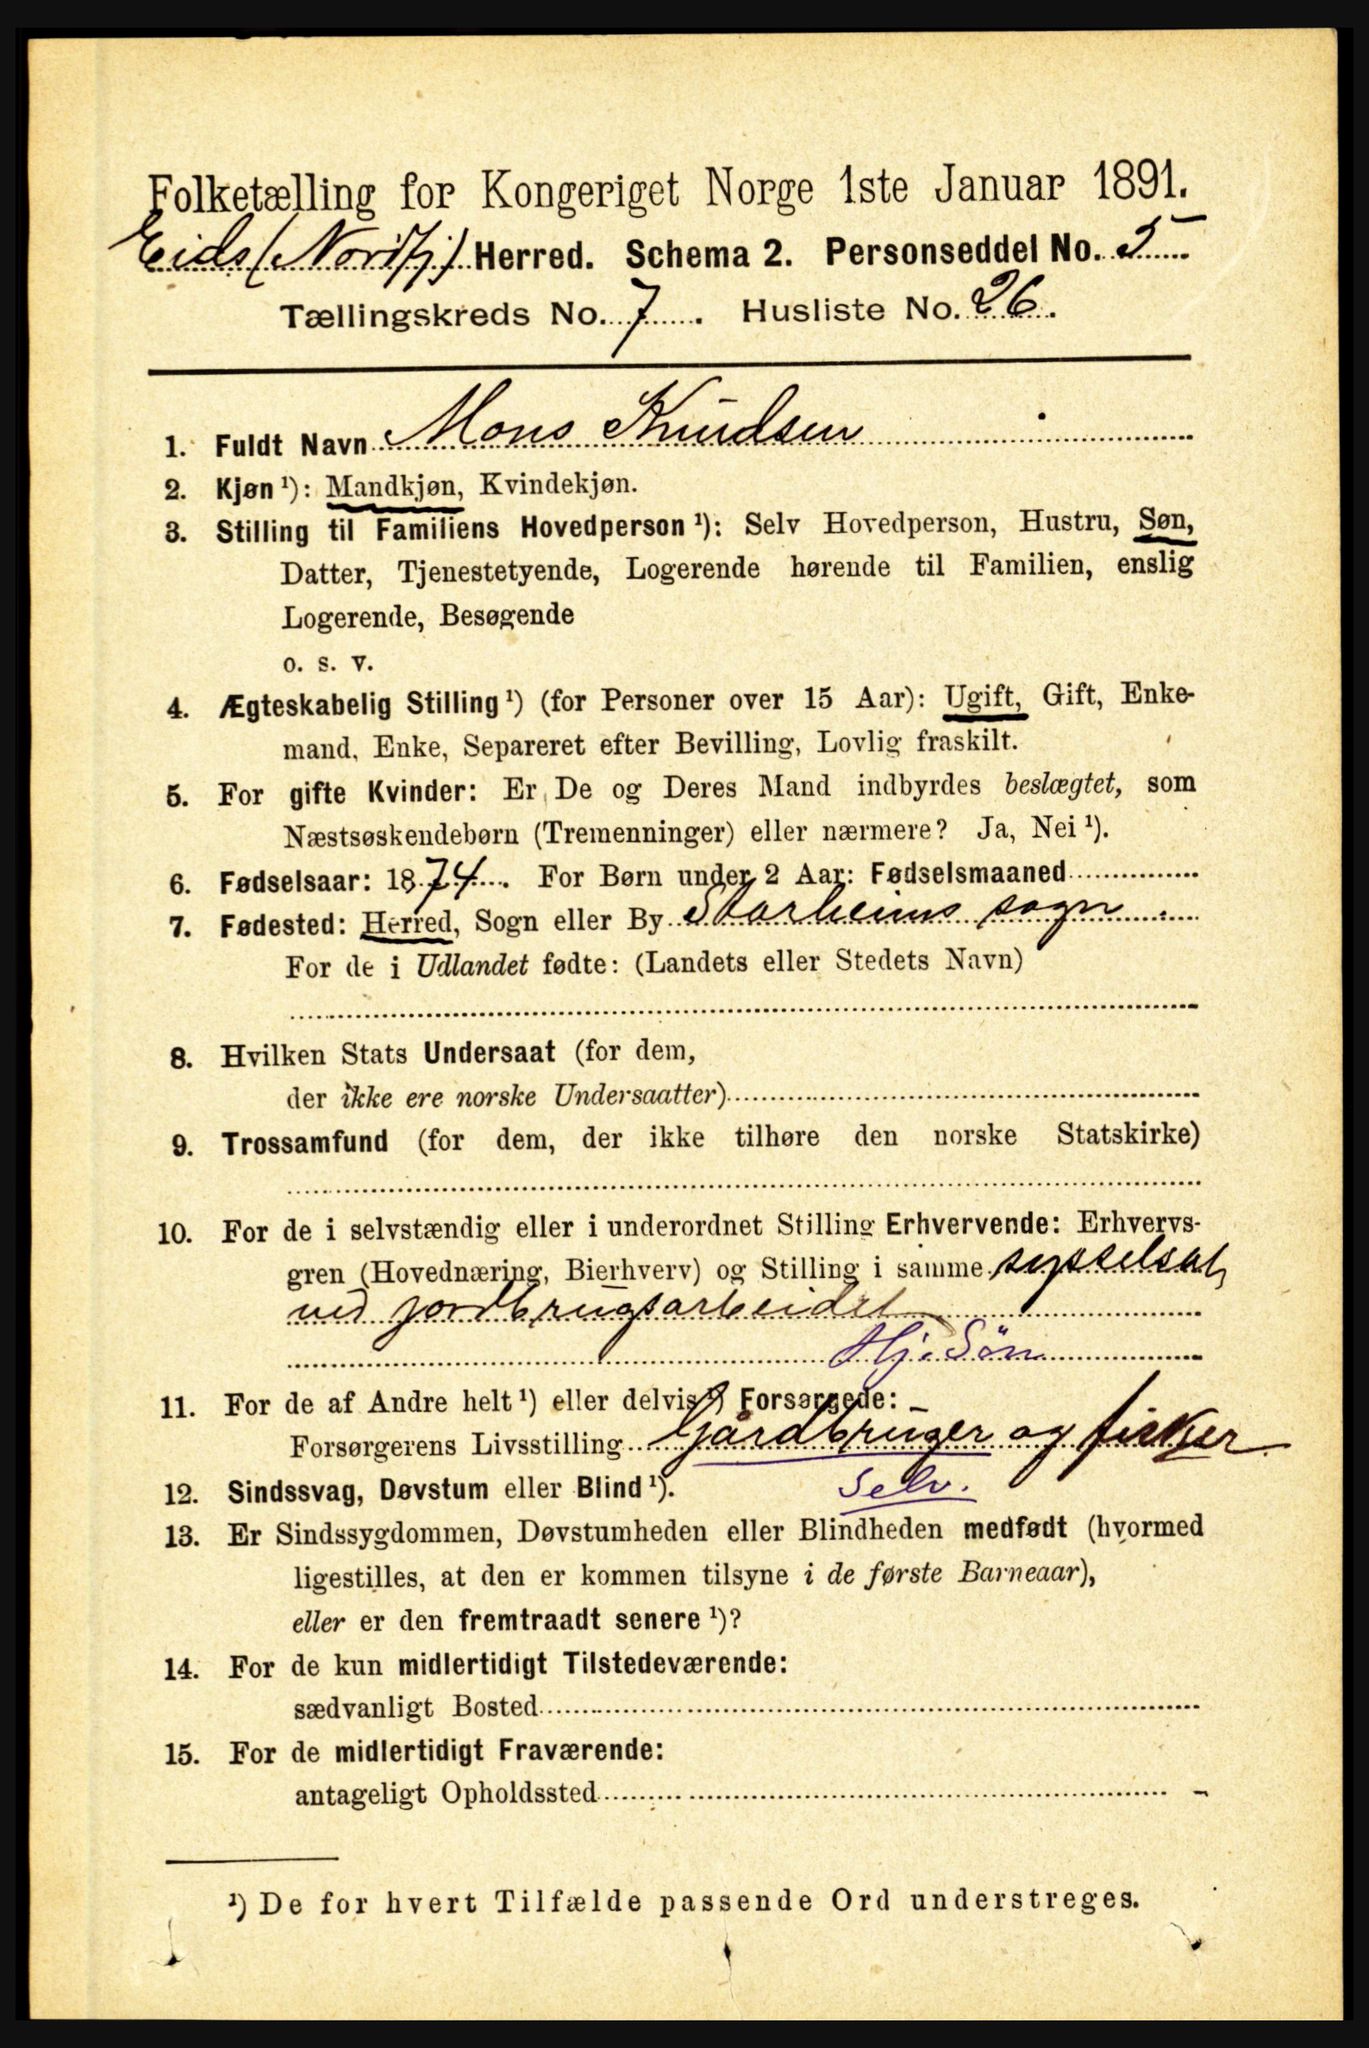 Folketælling for Kongeriget Norge 1ste Januar 1891.
Eids (Nordfj) Herred. Schema 2. Personseddel No. 5
Tællingskreds No. 7. Husliste No. 26.
1. Fuldt Navn Mons Knudsen
2. Kjøn ¹): Mandkjøn, Kvindekjøn.
3. Stilling til Familiens Hovedperson ¹): Selv Hovedperson, Hustru, Søn,
Datter, Tjenestetyende, Logerende hørende til Familien, enslig
Logerende, Besøgende
o. s. v.
4. Ægteskabelig Stilling ¹) (for Personer over 15 Aar): Ugift, Gift, Enke-
mand, Enke, Separeret efter Bevilling, Lovlig fraskilt.
5. For gifte Kvinder: Er De og Deres Mand indbyrdes beslægtet, som
Næstsøskendebørn (Tremenninger) eller nærmere? Ja, Nei ¹).
6. Fødselsaar: 1874. For Børn under 2 Aar: Fødselsmaaned
7. Fødested: Herred, Sogn eller By Starheims sogn
For de i Udlandet fødte: (Landets eller Stedets Navn)
8. Hvilken Stats Undersaat (for dem,
der ikke ere norske Undersaatter)
9. Trossamfund (for dem, der ikke tilhøre den norske Statskirke)
10. For de i selvstændig eller i underordnet Stilling Erhvervende: Erhvervs-
gren (Hovednæring, Bierhverv) og Stilling i samme sysselsat
ved jordbrugsarbeidet
Hj. Søn
11. For de af Andre helt ¹) eller delvis ¹) Forsørgede:
Forsørgerens Livsstilling Gårdbruger og fisker
Selv.
12. Sindssvag, Døvstum eller Blind ¹).
13. Er Sindssygdommen, Døvstumheden eller Blindheden medfødt (hvormed
ligestilles, at den er kommen tilsyne i de første Barneaar),
eller er den fremtraadt senere ¹)?
14. For de kun midlertidigt Tilstedeværende:
sædvanligt Bosted
15. For de midlertidigt Fraværende:
antageligt Opholdssted
¹) De for hvert Tilfælde passende Ord understreges.